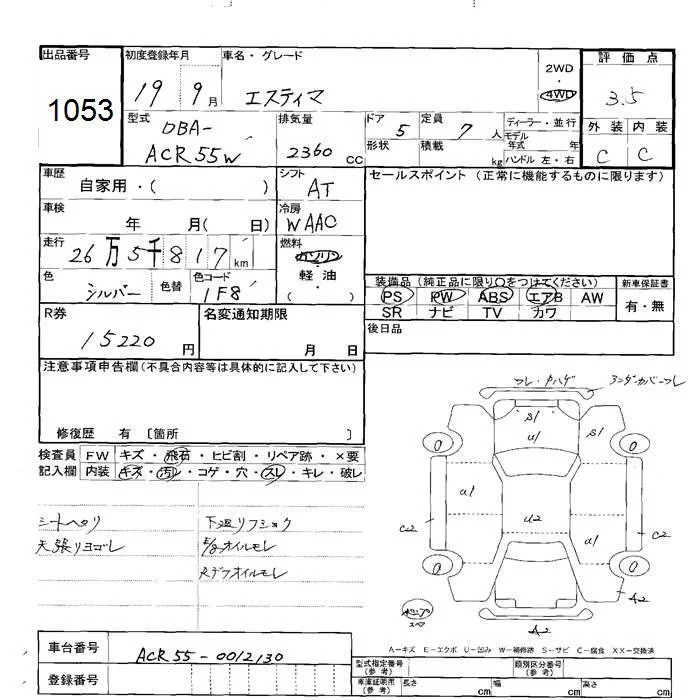 出品番号
1053
初度登録年月
19 9月
車名・グレード
エスティマ
2WD
4WD
評価点
3.5
外装 内装
C C
型式
DBA-
ACR55W
排気量
2360 CC
ドア 5
定員 7人
形状
積載 kg
ディーラー・並行
モデル
年式 年
ハンドル 左・右
車歴
自家用・( )
シフト
AT
セールスポイント (正常に機能するものに限ります)
車検
年 月( 日)
冷房
WAAC
走行
26万5千817km
燃料
ガソリン
軽油
( )
色
シルバー
色替
色コード
1F8
装備品 (純正品に限り○をつけてください)
PS PW ABS エアB AW
SR ナビ TV カワ
新車保証書
有・無
後日品
R券
15220円
名変通知期限
月 日
注意事項申告欄(不具合内容等は具体的に記入して下さい)
修復歴 有 〔箇所 〕
検査員
記入欄
FW キズ・飛石・ヒビ割・リペア跡・×要
内装 キズ・汚レ・コゲ・穴・スレ・キレ・破レ
シートヘタリ
天張リヨゴレ
下廻リフショク
E/gオイルモレ
Rデフオイルモレ
ワレ・Pハゲ
アンダーカバーワレ
S1
U1
S1
U1
U2
U1
C2
C2
A2
A2
スペア
A－キズ E－エクボ U－凹み W－補修跡 S－サビ C－腐食 XX－交換済
車台番号
ACR55-0012130
登録番号
型式指定番号
(参考)
類別区分番号
(参考)
車庫証明用
(参考)
長さ cm 幅 cm 高さ cm